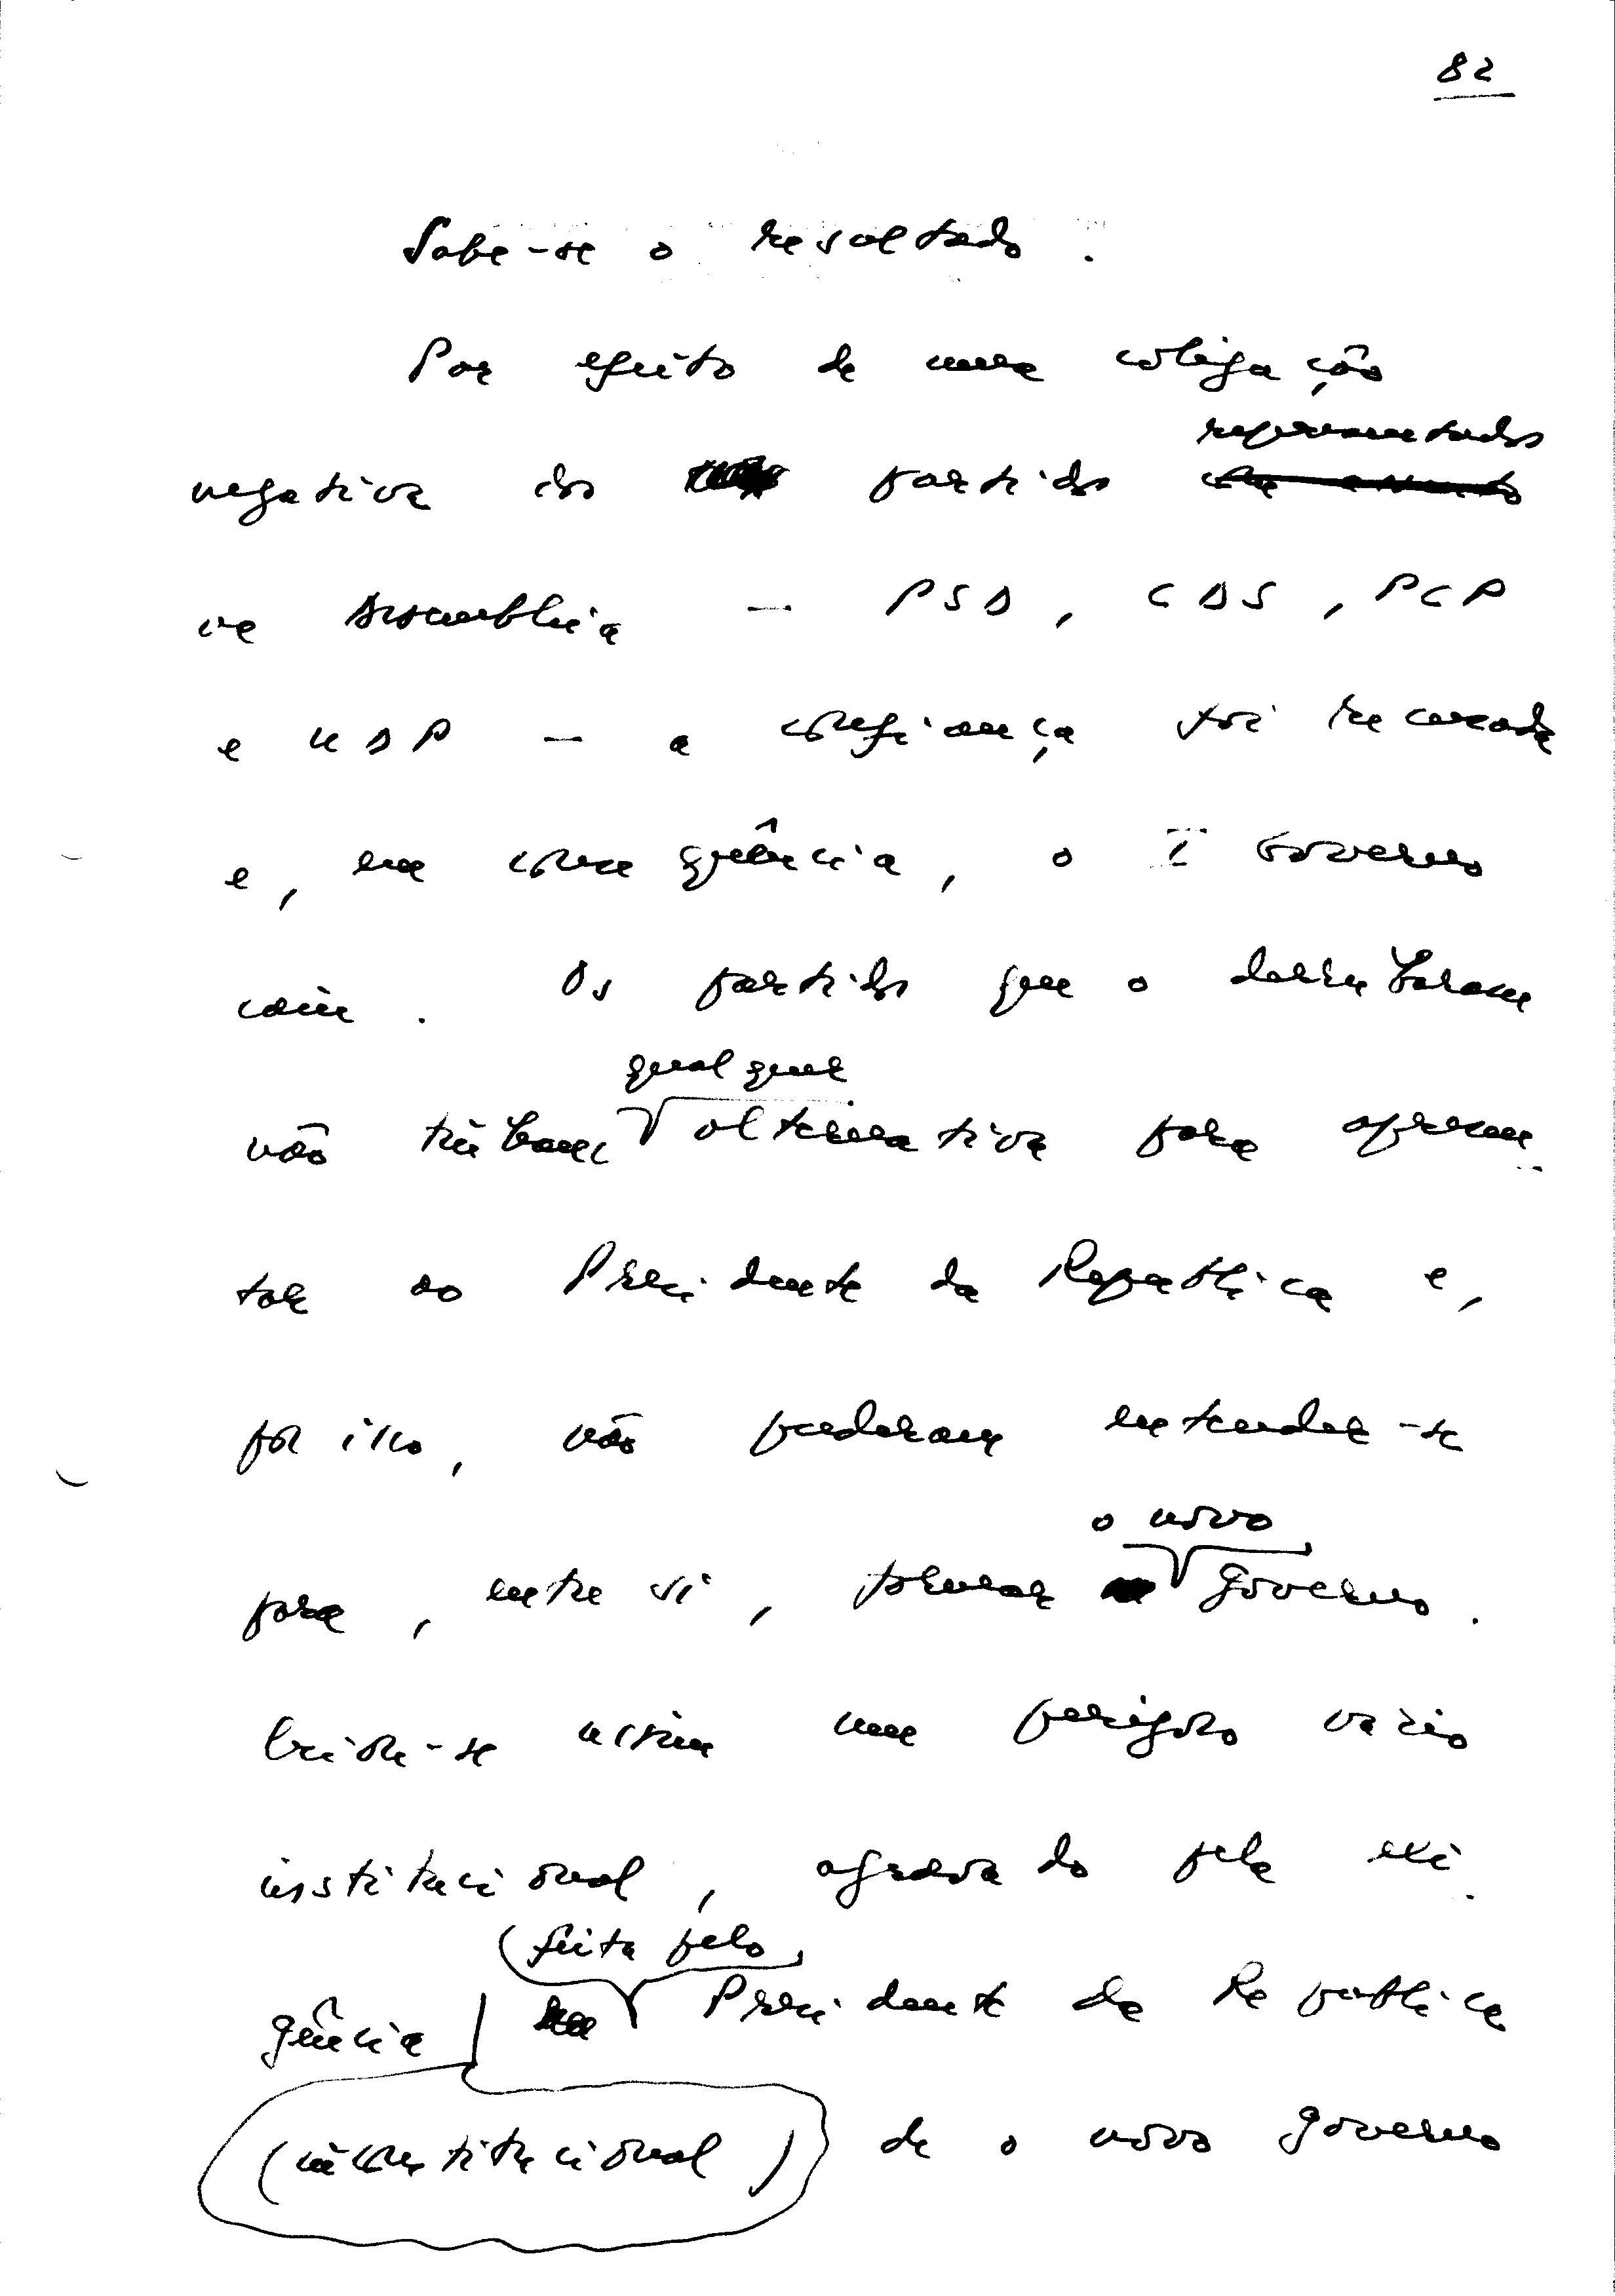 82
Sabe-se o resultado.
Por efeito de uma coligação
representados
negativa dos partidos
na Assembleia — PSD, CDS, PCP
e UDP — a confiança foi recusada
e, em consequência, o I Governo
caiu. Os partidos que o derrubaram
qualquer
não tinham alternativa para apresen
tar ao Presidente da República e,
por isso, não puderam entender-se
o novo
para, entre si, formar governo.
Criou-se assim um perigoso vazio
institucional, agravado pela exi
feita pelo
gência Presidente da República
(inconstitucional) de o novo governo